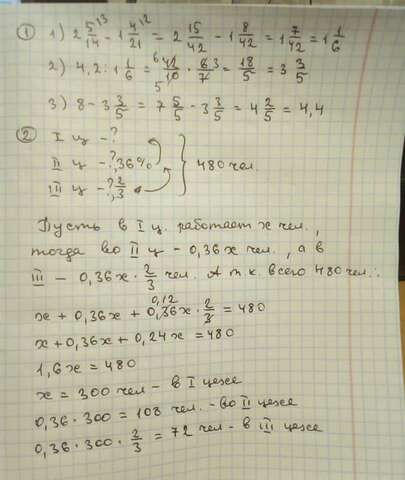 ① 1) 2 5/14 \3 - 1 4/21 \2 = 2 15/42 - 1 8/42 = 1 7/42 = 1 1/6
2) 4,2 : 1 1/6 = 42/10 · 6/7 = 18/5 = 3 3/5
3) 8 - 3 3/5 = 7 5/5 - 3 3/5 = 4 2/5 = 4,4
② I ц - ?
II ц - ?, 36%
III ц - ?, 2/3
480 чел.
Пусть в I ц. работает x чел.,
тогда во II ц - 0,36x чел., а в
III - 0,36x · 2/3 чел. А т.к. всего 480 чел.:
0,12
x + 0,36x + 0,36x · 2/3 = 480
x + 0,36x + 0,24x = 480
1,6x = 480
x = 300 чел - в I цехе
0,36 · 300 = 108 чел. - во II цехе
0,36 · 300 · 2/3 = 72 чел - в III цехе